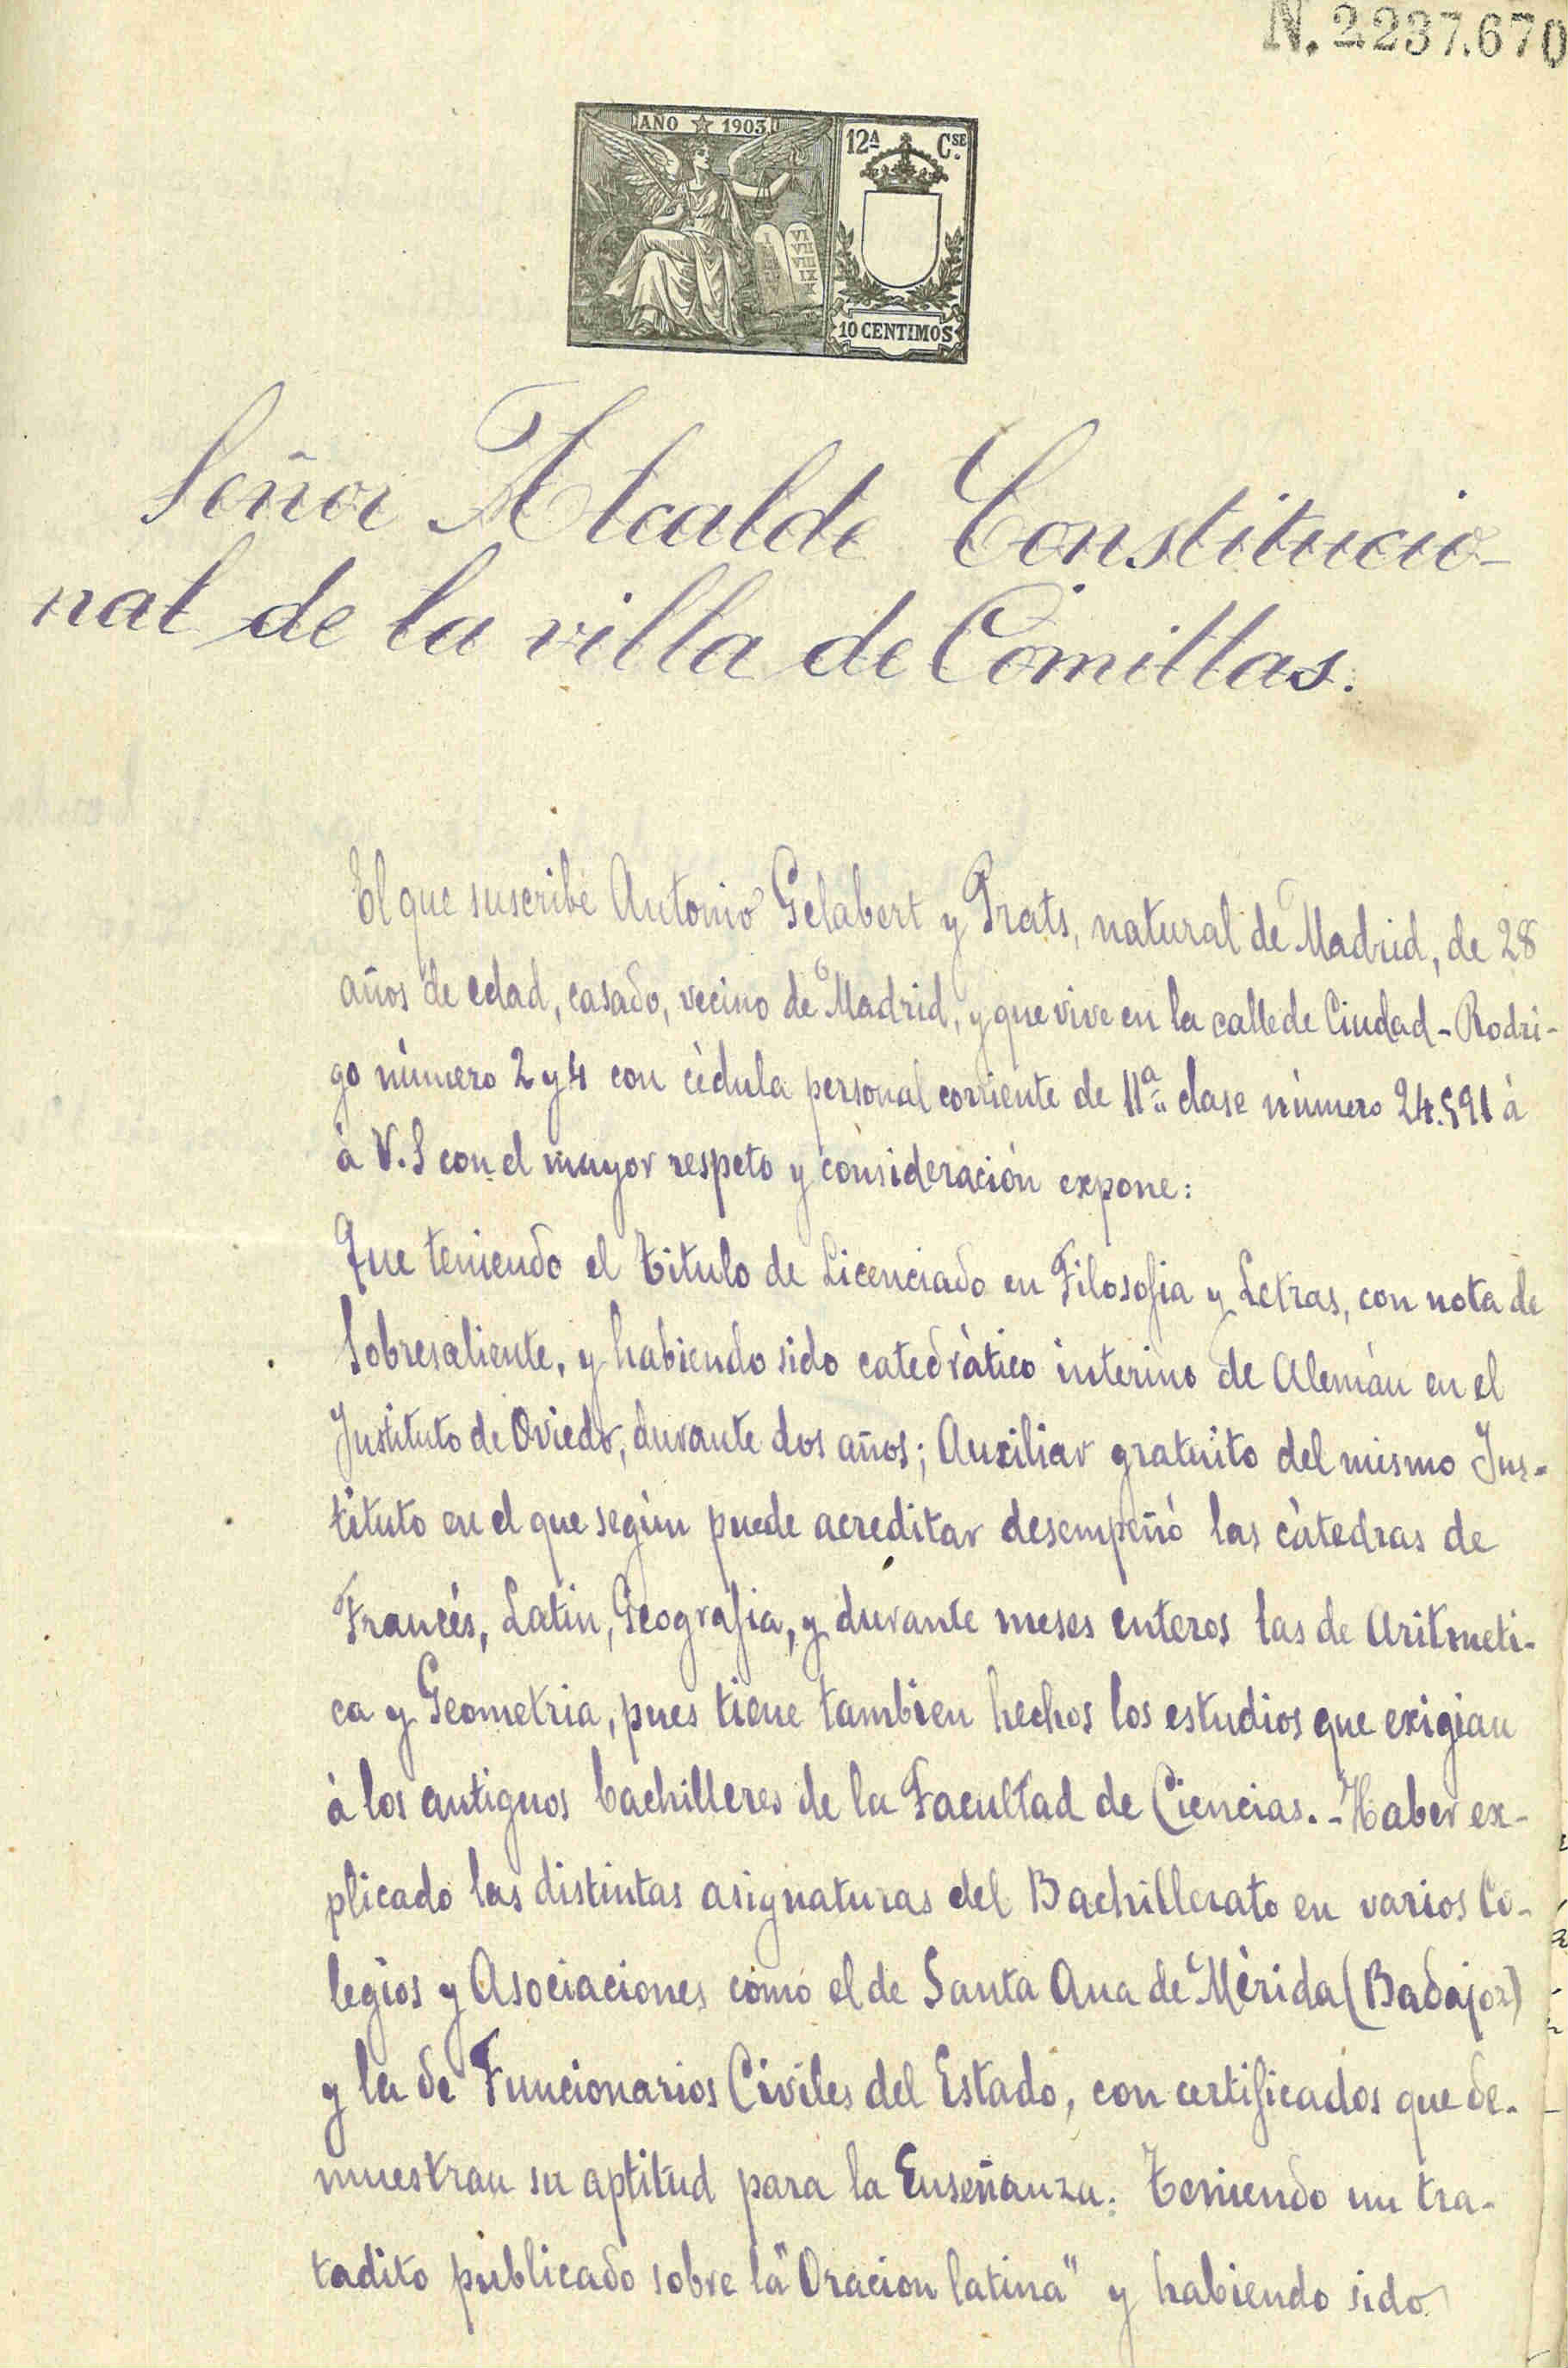 N. 2.237.670
AÑO ★ 1903
12ª Cse.
10 CENTIMOS
Señor Alcalde Constitucio-
nal de la villa de Comillas.
El que suscribe Antonio Gelabert y Prats, natural de Madrid, de 28
años de edad, casado, vecino de Madrid, y que vive en la calle de Ciudad-Rodri-
go nùmero 2 y 4 con cèdula personal corriente de 11ª clase nùmero 24.591 à
à V.S con el mayor respeto y consideraciòn expone:
Que teniendo el titulo de Licenciado en Filosofia y Letras, con nota de
Sobresaliente, y habiendo sido catedràtico interino de Alemàn en el
Instituto de Oviedo, durante dos años; Auxiliar gratuito del mismo Ins-
tituto en el que segùn puede acreditar desempeñò las càtedras de
Francès, Latin, Geografia, y durante meses enteros las de Aritmeti-
ca y Geometria, pues tiene tambien hechos los estudios que exigian
à los antiguos bachilleres de la Facultad de Ciencias.-Haber ex-
plicado las distintas asignaturas del Bachillerato en varios Co-
legios y Asociaciones como el de Santa Ana de Mèrida (Badajoz)
y la de Funcionarios Civiles del Estado, con certificados que de-
muestran su aptitud para la Enseñanza. Teniendo un tra-
tadito publicado sobre la "Oracion latina" y habiendo sido